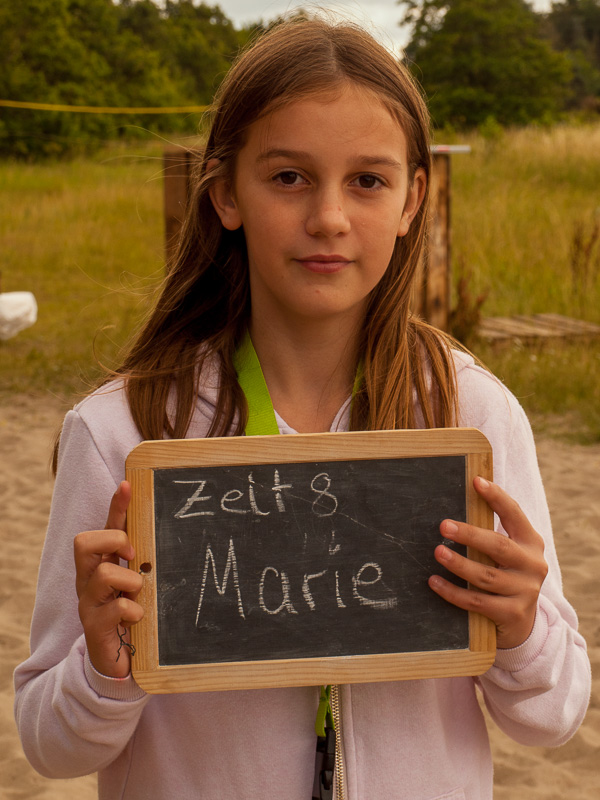 Zelt 8
Marie